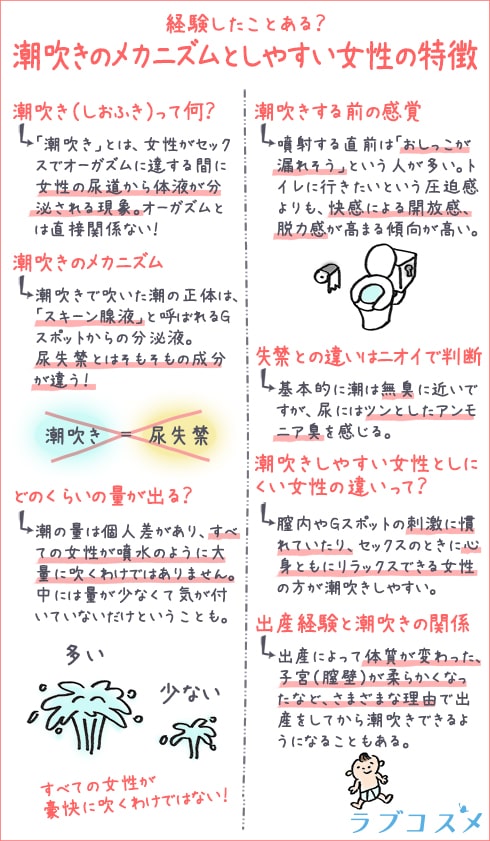 経験したことある?
潮吹きのメカニズムとしやすい女性の特徴
潮吹き(しおふき)って何?
「潮吹き」とは、女性がセック
スでオーガズムに達する間に
女性の尿道から体液が分
泌される現象。オーガズムと
は直接関係ない!
潮吹きのメカニズム
潮吹きで吹いた潮の正体は、
「スキーン腺液」と呼ばれるG
スポットからの分泌液。
尿失禁とはそもそもの成分
が違う!
潮吹き = 尿失禁
どのくらいの量が出る?
潮の量は個人差があり、すべ
ての女性が噴水のように大
量に吹くわけではありません。
中には量が少なくて気が付
いていないだけということも。
多い
少ない
すべての女性が
豪快に吹くわけではない!
潮吹きする前の感覚
噴射する直前は「おしっこが
漏れそう」という人が多い。ト
イレに行きたいという圧迫感
よりも、快感による開放感、
脱力感が高まる傾向が高い。
失禁との違いはニオイで判断
基本的に潮は無臭に近いで
すが、尿にはツンとしたアンモ
ニア臭を感じる。
潮吹きしやすい女性としに
くい女性の違いって?
膣内やGスポットの刺激に慣
れていたり、セックスのときに心
身ともにリラックスできる女性
の方が潮吹きしやすい。
出産経験と潮吹きの関係
出産によって体質が変わった、
子宮(膣壁)が柔らかくなっ
たなど、さまざまな理由で出
産をしてから潮吹きできるよ
うになることもある。
ラブコスメ